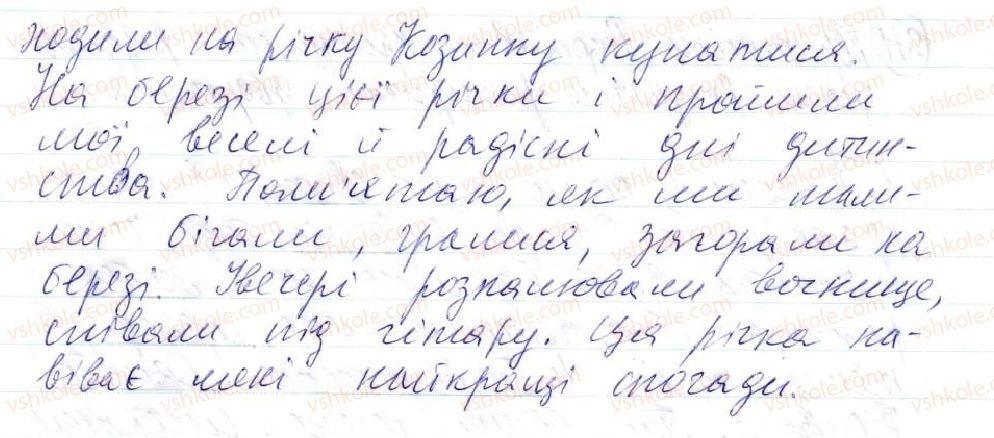 ходили на річку Козинку купатися.
На березі цієї річки і пройшли
мої веселі й радісні дні дитин-
ства. Пам'ятаю, як ми мали-
ми бігали, гралися, загорали на
березі. Увечері розпалювали вогнище,
співали під гітару. Ця річка на-
віває мені найкращі спогади.